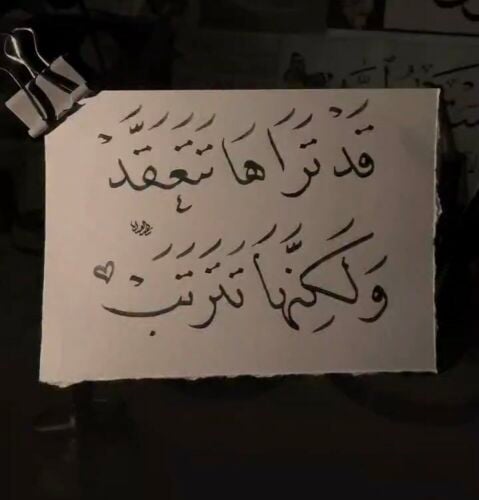 قَدْ تَرَاهَا تَتَعَقَّدْ
وَلَكِنَّهَا تَتَرَتَّبْ